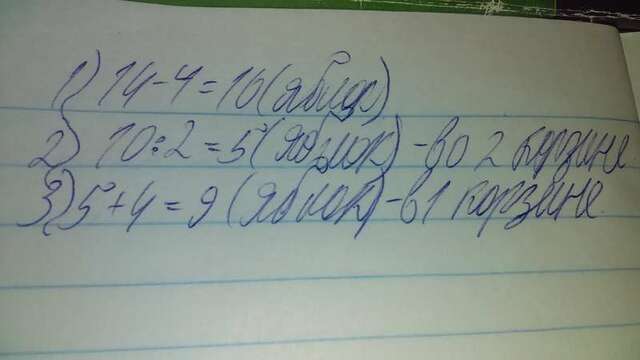 1) 14-4=10(яблок)
2) 10:2=5(яблок)-во 2 корзине
3) 5+4=9(яблок)-в 1 корзине.